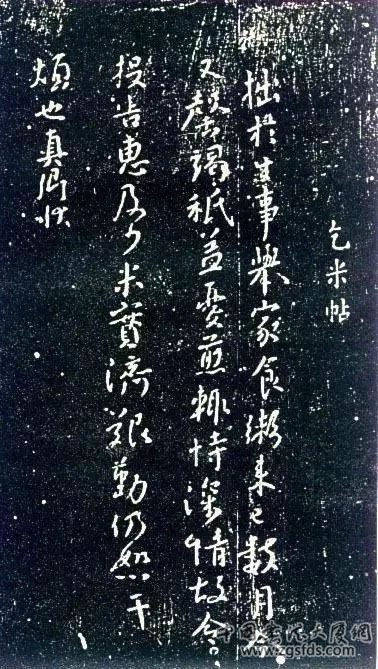 乞米帖
拙於生事舉家食粥來已數月今
又罄竭祇益憂煎輒恃深情故令
投告惠及少米實濟艱勤仍恕干
煩也真卿狀
www.zgsfds.com